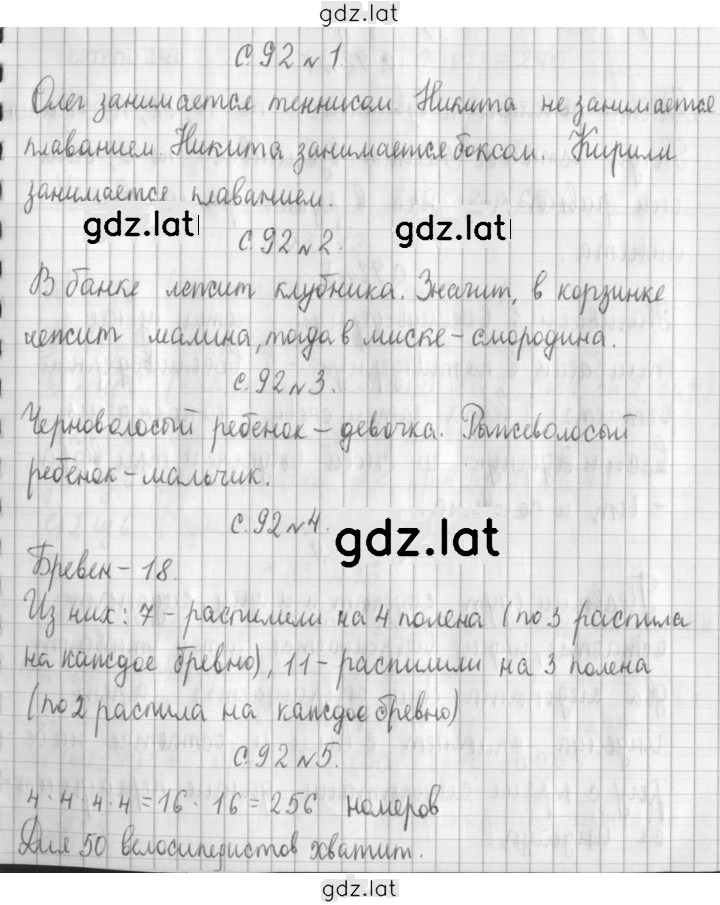 gdz.lat
с. 92 № 1.
Олег занимается теннисом. Никита не занимается
плаванием. Никита занимается боксом. Кирилл
занимается плаванием.
gdz.lat
gdz.lat
с. 92 № 2.
В банке лежит клубника. Значит, в корзинке
лежит малина, тогда в миске – смородина.
с. 92 № 3.
Черноволосый ребенок – девочка. Рыжеволосый
ребенок – мальчик.
с. 92 № 4.
gdz.lat
Бревен – 18.
Из них: 7 – распилили на 4 полена (по 3 распила
на каждое бревно), 11 – распилили на 3 полена
(по 2 распила на каждое бревно)
с. 92 № 5.
4 · 4 · 4 · 4 = 16 · 16 = 256 номеров
Для 50 велосипедистов хватит.
gdz.lat